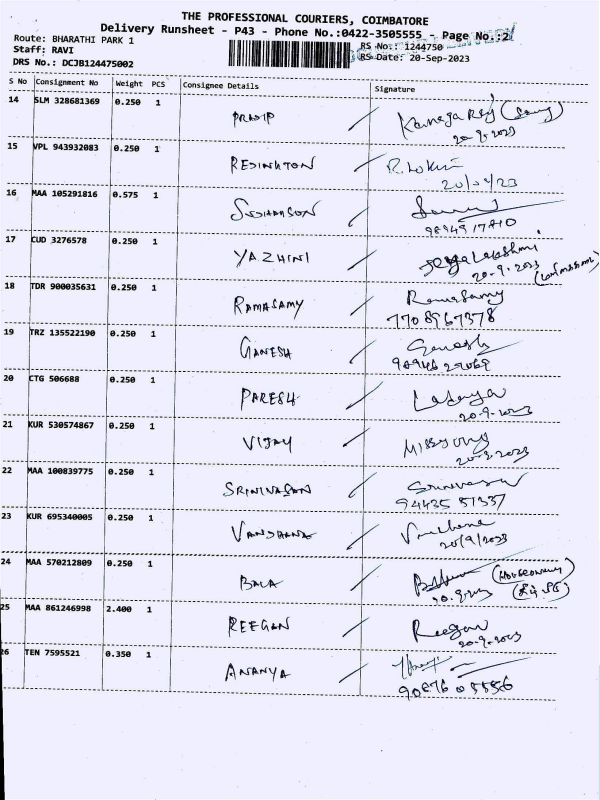 THE PROFESSIONAL COURIERS, COIMBATORE
Delivery Runsheet - P43 - Phone No.:0422-3505555 - Page No.:2
Route: BHARATHI PARK 1
RS No: 1244750
Staff: RAVI
RS Date: 20-Sep-2023
DRS No.: DCJB124475002
S No Consignment No Weight PCS Consignee Details Signature
14 SLM 328681369 0.250 1 PRADIP
20-9-2023
15 VPL 943932083 0.250 1 REDINGTON R.
16 MAA 105291816 0.575 1
17 CUD 3276578 0.250 1 YAZHINI Jeyalakshmi
20-9-2023
18 TDR 900035631 0.250 1 RAMASAMY Ramasamy
7708967378
19 TRZ 135522190 0.250 1 GANESH Ganesh
20 CTG 506688 0.250 1 PARESH
20-9-2023
21 KUR 530574867 0.250 1 VIJAY
20-9-2023
22 MAA 100839775 0.250 1 SRINIVASAN Srinivasan
94435 81337
23 KUR 695340005 0.250 1 VANDHANA
20/9/2023
24 MAA 570212809 0.250 1 BALA (Houseowner)
20-9-2023
25 MAA 861246998 2.400 1 REEGAN Reegan
20-9-2023
26 TEN 7595521 0.350 1 ANANYA